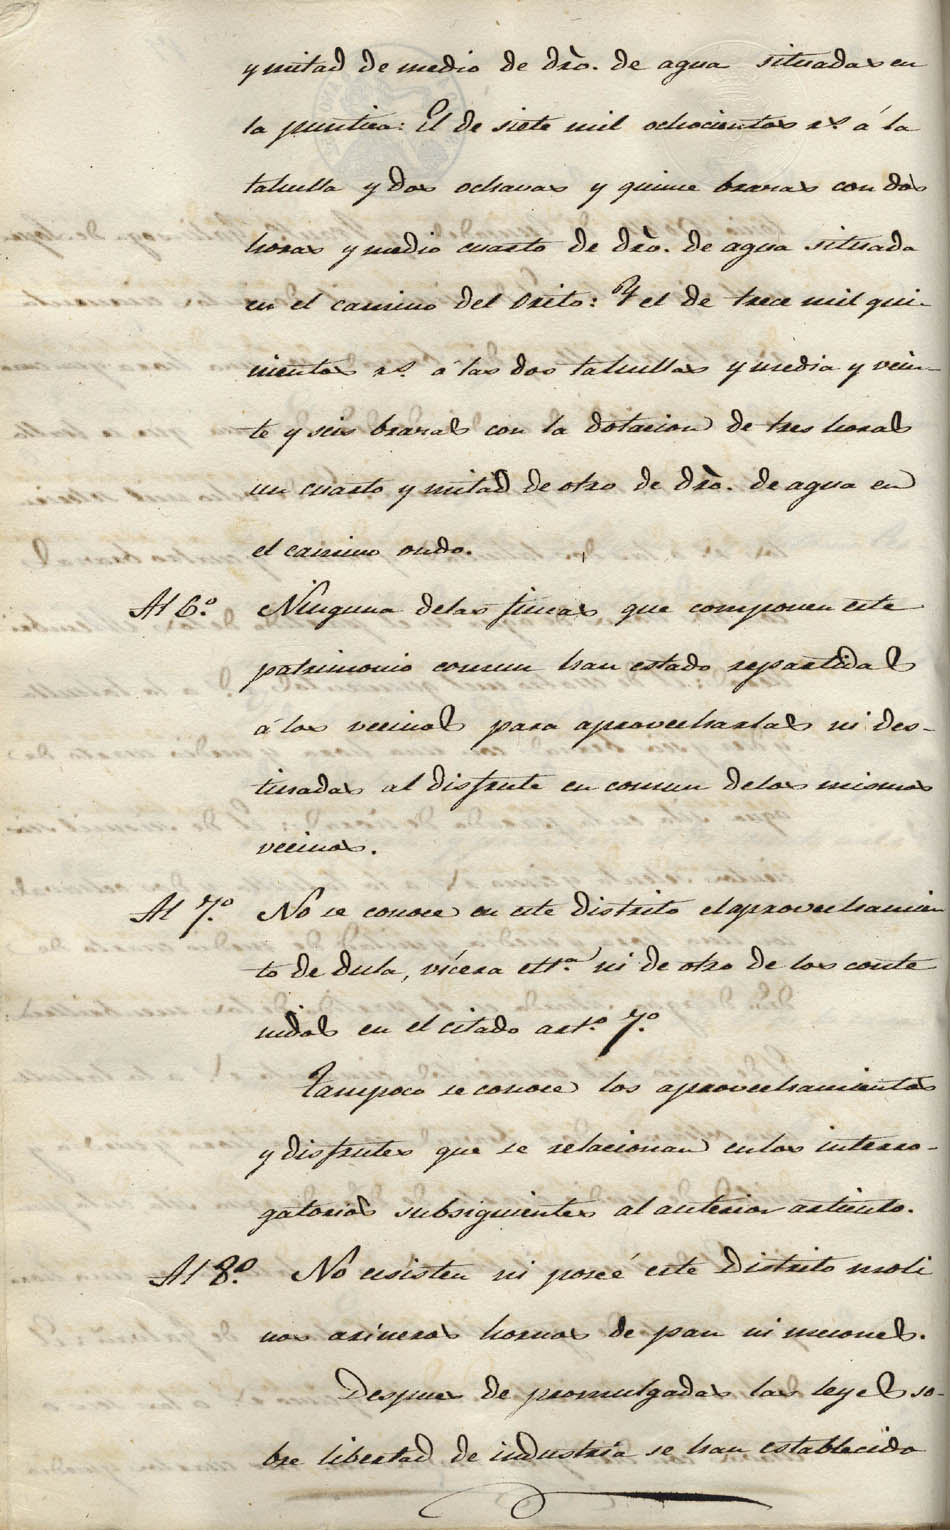 y mitad de medio de dro. de agua situadas en
la puntica: El de siete mil ochocientos rs. á la
tahulla y dos ochavas y quince brazas con dos
horas y medio cuarto de dro. de agua situada
en el camino del : Y el de trece mil qui-
nientos rs. á las dos tahullas y media y vein-
te y seis brazas con la dotacion de tres horas
un cuarto y mitad de otro de dro. de agua en
el camino ondo.
Al 6.º Ninguna delas fincas que componen este
patrimonio comun han estado repartidas
á los vecinos para aprovecharlas ni des-
tinadas al disfrute en comun delos mismos
vecinos.
Al 7.º No se conoce en este distrito el aprovechamien
to de dula, vícera ett.ª ni de otro de los conte
nidos en el citado art.º 7.º
Tampoco se conoce los aprovechamientos
y disfrutes que se relacionan enlos interro-
gatorios subsiguientes al anterior articulo.
Al 8.º No ecsisten ni poséé este Distrito moli
nos arineros hornos de pan ni mesones.
Despues de promulgadas las leyes so-
bre libertad de industria se han establecido